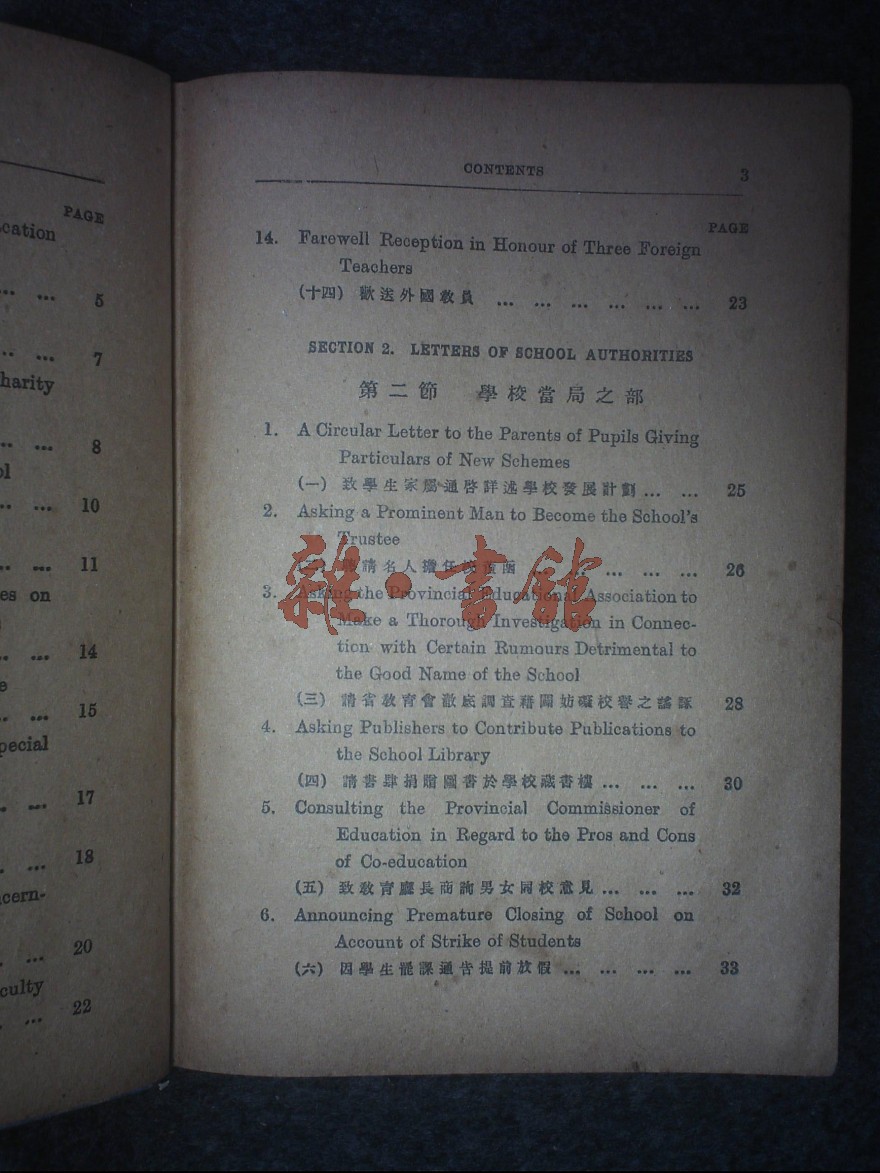 PAGE
cation
... ... 5
... ... 7
harity
... ... 8
ol
... ... 10
... ... 11
es on
... ... 14
e
... ... 15
pecial
... 17
... 18
cern-
... 20
culty
... 22
CONTENTS 3
PAGE
14. Farewell Reception in Honour of Three Foreign
Teachers
(十四) 歡送外國敎員 ... ... ... ... ... ... 23
SECTION 2. LETTERS OF SCHOOL AUTHORITIES
第二節 學校當局之部
1. A Circular Letter to the Parents of Pupils Giving
Particulars of New Schemes
(一) 致學生家屬通啓詳述學校發展計劃 ... ... 25
2. Asking a Prominent Man to Become the School's
Trustee
(二) 請名人擔任校董函 ... ... ... ... ... 26
3. Asking the Provincial Educational Association to
Make a Thorough Investigation in Connec-
tion with Certain Rumours Detrimental to
the Good Name of the School
(三) 請省敎育會澈底調查藉圖妨礙校譽之謠諑 28
4. Asking Publishers to Contribute Publications to
the School Library
(四) 請書肆捐贈圖書於學校藏書樓 ... ... ... 30
5. Consulting the Provincial Commissioner of
Education in Regard to the Pros and Cons
of Co-education
(五) 致敎育廳長商詢男女同校意見 ... ... ... 32
6. Announcing Premature Closing of School on
Account of Strike of Students
(六) 因學生罷課通告提前放假 ... ... ... ... 33
雜·書館